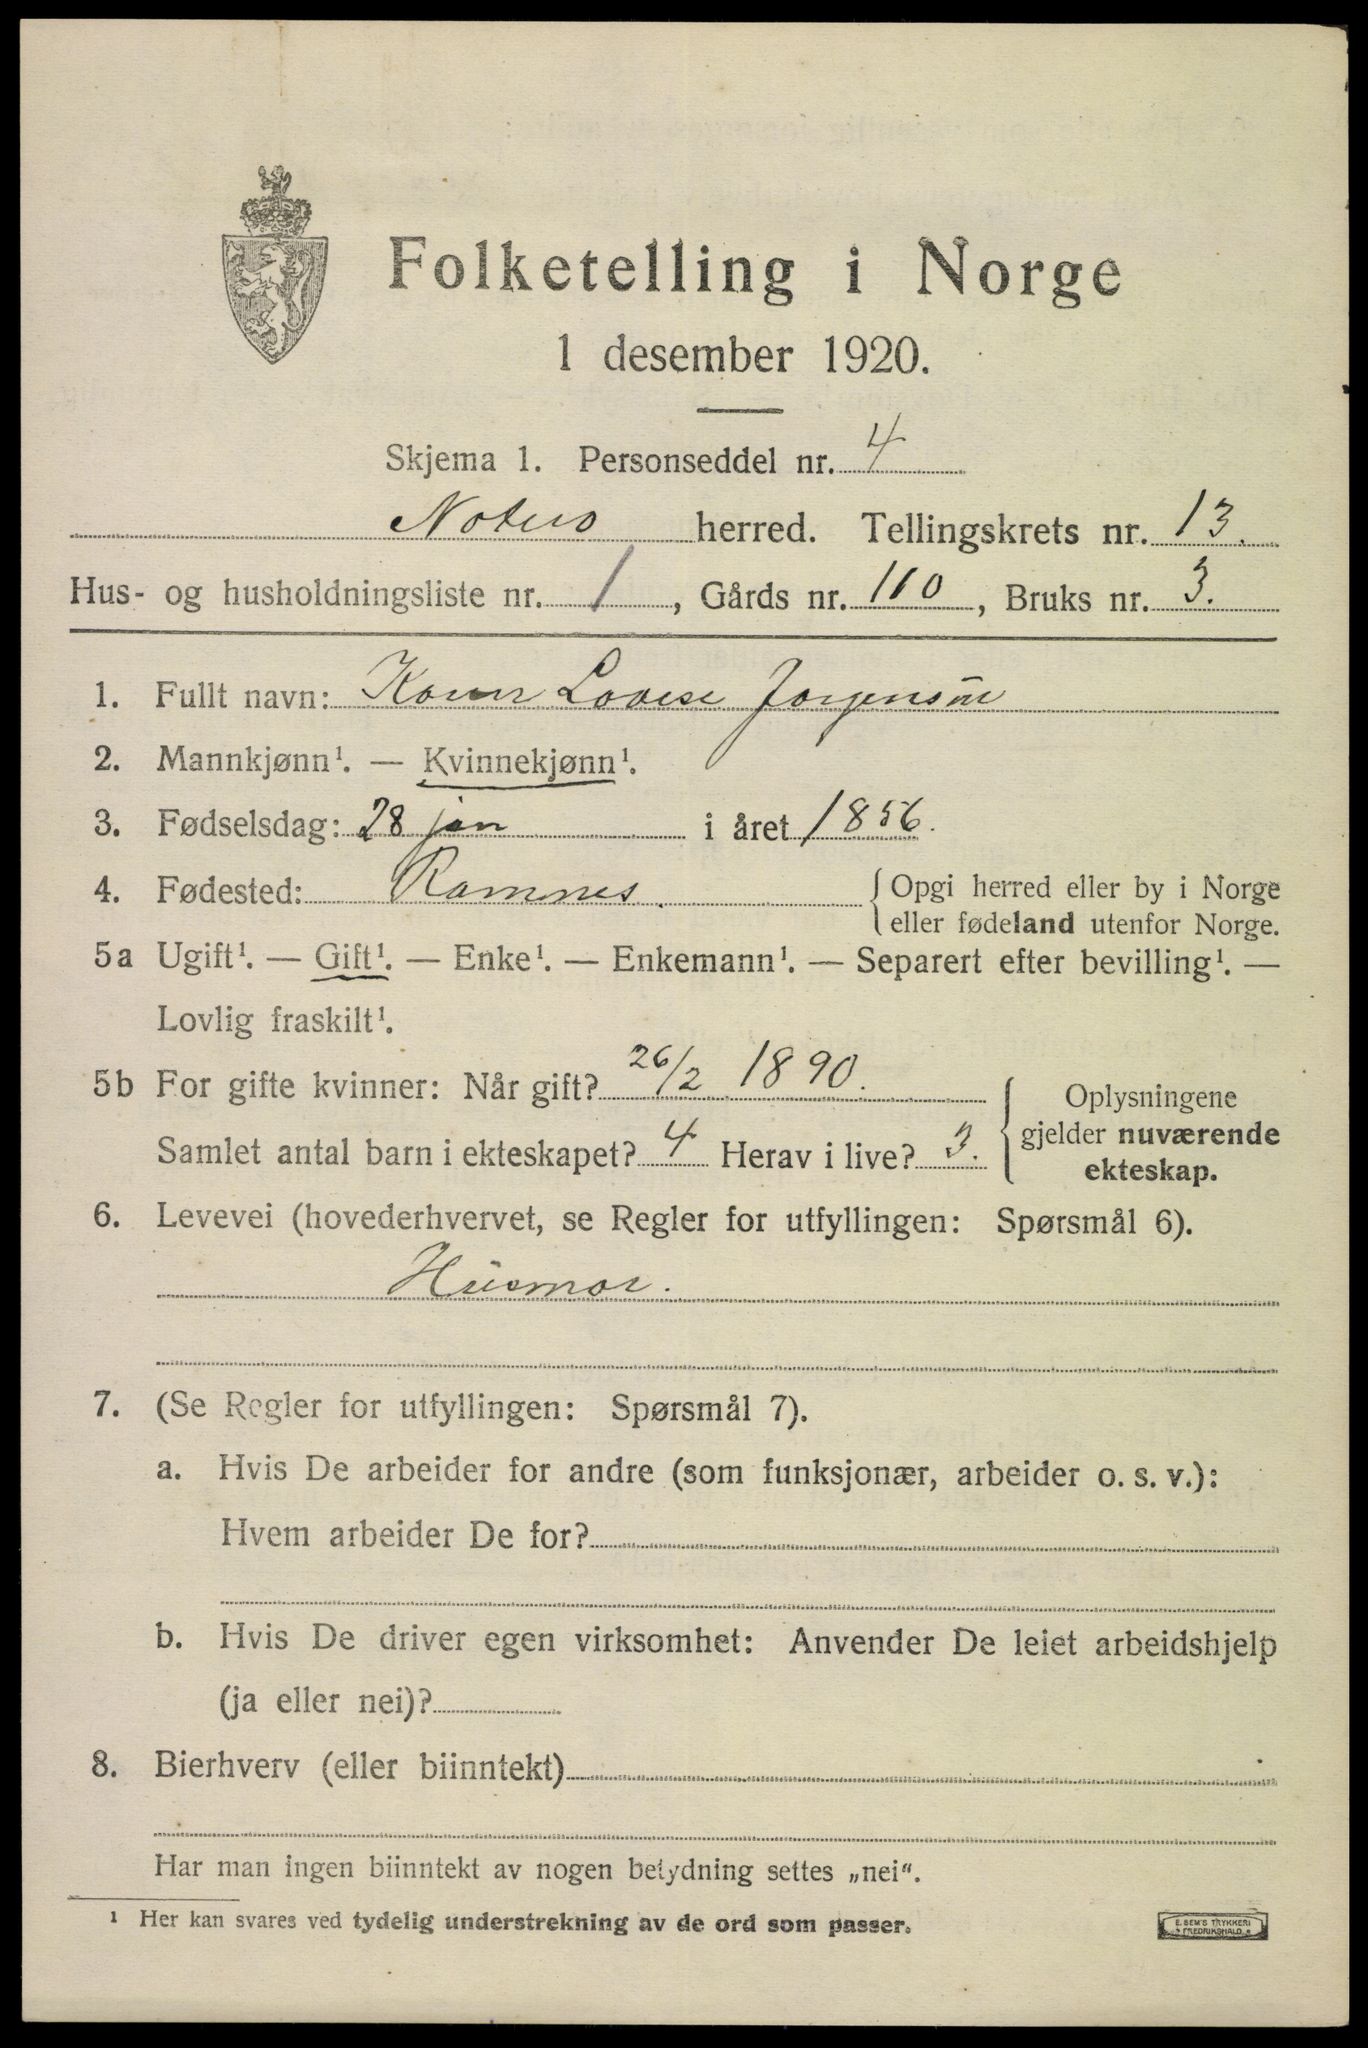 Folketelling i Norge
1 desember 1920.
Skjema 1. Personseddel nr. 4
Notero herred. Tellingskrets nr. 13.
Hus- og husholdningsliste nr. 1, Gårds nr. 110, Bruks nr. 3.
1. Fullt navn: Karen Lovise Jørgensen
2. Mannkjønn¹. — Kvinnekjønn¹.
3. Fødselsdag: 28 jan i året 1856.
4. Fødested: Ramnes. { Opgi herred eller by i Norge
eller fødeland utenfor Norge.
5a Ugift¹. — Gift¹. — Enke¹. — Enkemann¹. — Separert efter bevilling¹. —
Lovlig fraskilt¹.
5b For gifte kvinner: Når gift? 26/2 1890.
Samlet antal barn i ekteskapet? 4 Herav i live? 3.
{ Oplysningene
gjelder nuværende
ekteskap.
6. Levevei (hovederhvervet, se Regler for utfyllingen: Spørsmål 6).
Husmor.
7. (Se Regler for utfyllingen: Spørsmål 7).
a. Hvis De arbeider for andre (som funksjonær, arbeider o. s. v.):
Hvem arbeider De for?
b. Hvis De driver egen virksomhet: Anvender De leiet arbeidshjelp
(ja eller nei)?
8. Bierhverv (eller biinntekt)
Har man ingen biinntekt av nogen betydning settes „nei“.
¹ Her kan svares ved tydelig understrekning av de ord som passer.
E. SEM'S TRYKKERI
FREDRIKSHALD.